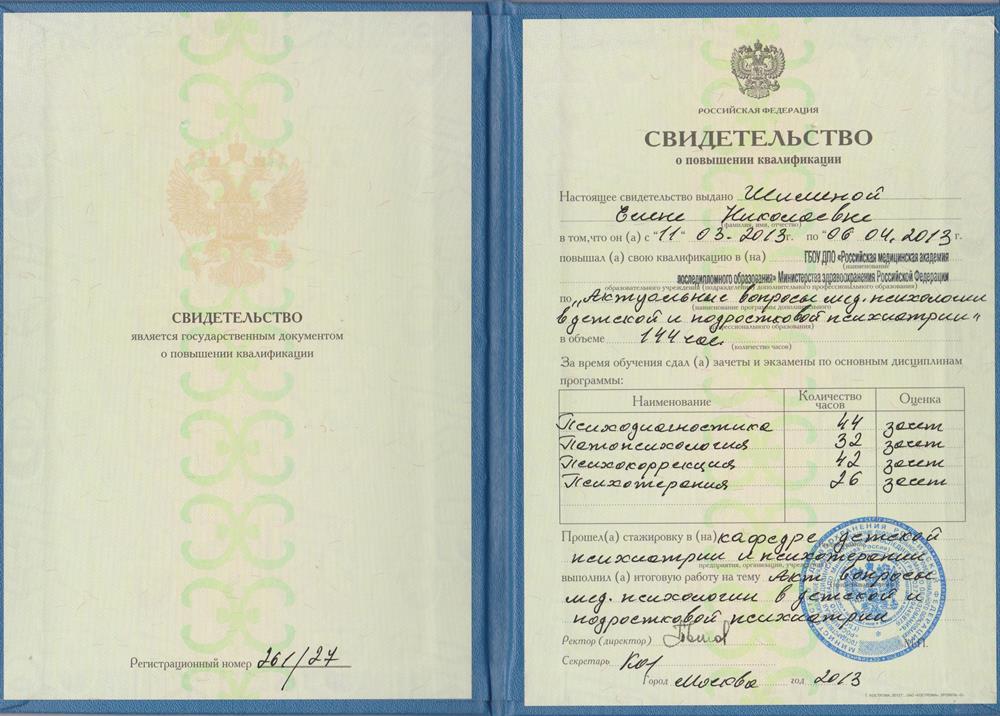 СВИДЕТЕЛЬСТВО
является государственным документом
о повышении квалификации
Регистрационный номер 261/27
РОССИЙСКАЯ ФЕДЕРАЦИЯ
СВИДЕТЕЛЬСТВО
о повышении квалификации
Настоящее свидетельство выдано
Елене Николаевне
(фамилия, имя, отчество)
в том,что он (а) с "11" 03. 2013г. по "06 04. 2013 г.
повышал (а) свою квалификацию в (на) ГБОУ ДПО «Российская медицинская академия
(наименование
последипломного образования» Министерства здравоохранения Российской Федерации
образовательного учреждения (подразделения) дополнительного профессионального образования)
по „Актуальные вопросы мед. психологии
(наименование программы дополнительного
в детской и подростковой психиатрии"
профессионального образования)
в объеме 144 час.
(количество часов)
За время обучения сдал (а) зачеты и экзамены по основным дисциплинам
программы:
Наименование Количество часов Оценка
Психодиагностика 44 зачет
Патопсихология 32 зачет
Психокоррекция 42 зачет
Психотерапия 26 зачет
Прошел(а) стажировку в (на) кафедре детской
психиатрии и психотерапии
предприятия, организации,
выполнил (а) итоговую работу на тему Акт. вопросы
мед. психологии в детской и
подростковой психиатрии
Ректор (директор)
Секретарь
Город Москва год 2013